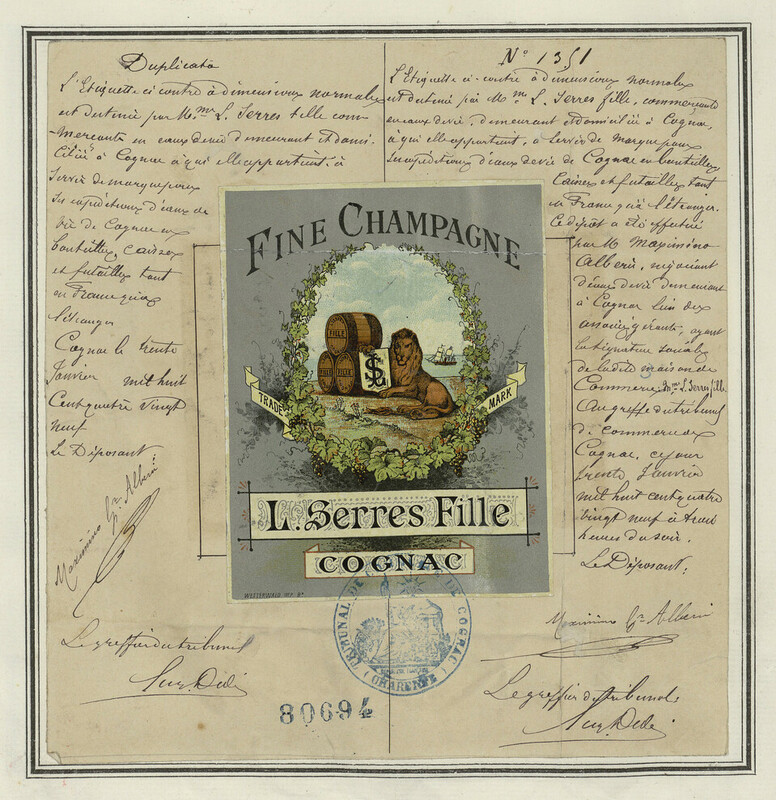 Duplicata
L'Etiquette ci contre à dimensions normales
est destiné par Mme L. Serres fille com
merçante en eaux devie demeurant et domi
ciliée à Cognac à qui elle appartient, à
servir de marque pour
ses expéditions d'eaux de
vie de Cognac en
bouteilles, caisses
et futailles tant
en France qu'à
l'étranger
Cognac le trente
Janvier mil huit
Cent quatre vingt
neuf
Le Déposant
Maximino Gn Alberi
Le greffier du tribunal
No 1351
L'Etiquette ci-contre à dimensions normales
est destiné par Mme L. Serres fille, commerçante
en eaux devie, demeurant et domiciliée à Cognac,
à qui elle appartient, à servir de marque pour
ses expéditions d'eaux devie de Cognac en bouteilles,
Caisses et futailles tant
en France qu'à l'étranger.
Ce dépôt a été effectué
par M. Maximino
Alberi, négociant
d'eaux devie demeurant
à Cognac l'un des
associés gérants, ayant
la signature sociale
de ladite maison de
Commerce Mme L. Serres fille
Au greffe du tribunal
de commerce de
Cognac, ce jour
trente Janvier
mil huit cent quatre
vingt neuf à trois
heures du soir.
Le Déposant:
Maximino Gn Alberi
Le greffier du tribunal
FINE CHAMPAGNE
FINE
LS
TRADE MARK
L. Serres Fille
COGNAC
WETTERWALD IMP. Bx
TRIBUNAL DE COMMERCE DE COGNAC
(CHARENTE)
80694